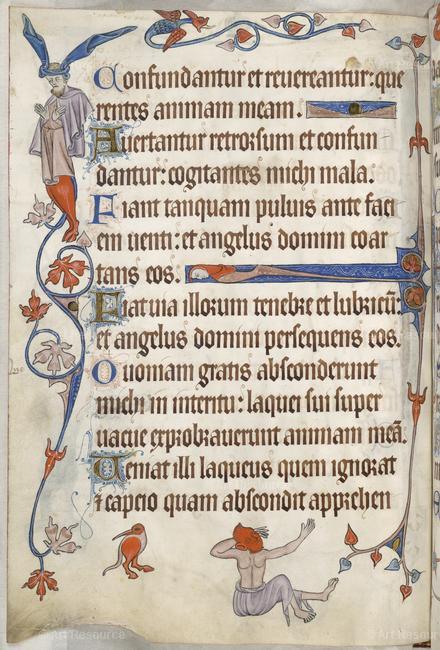 Confundantur et reuereantur: que
rentes animam meam.
Auertantur retrorsum et confun
dantur: cogitantes michi mala.
Fiant tanquam puluis ante faci
em uenti: et angelus domini coar
tans eos.
Fiat uia illorum tenebre et lubricū:
et angelus domini persequens eos.
Quoniam gratis absconderunt
michi in interitu: laquei sui super
uacue exprobrauerunt animam meā.
Ueniat illi laqueus quem ignorat
⁊ capcio quam abscondit apprehen
Art Resource
Art Resource